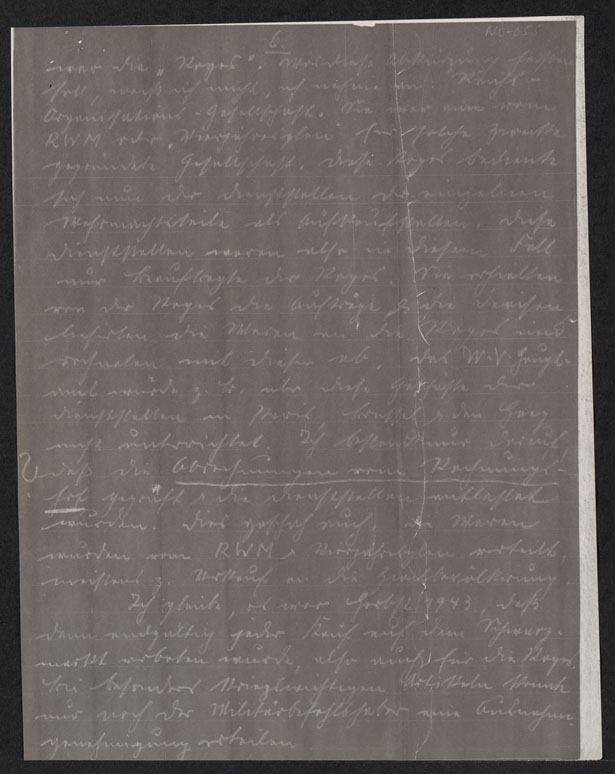 NO-055
6.
war die „Roges". Was diese Abkürzung heissen
soll, weiß ich nicht, ich nehme an: Rohst-
Organisations-Gesellschaft. Sie war eine vom
RWM oder „Vierjahresplan" für solche Zwecke
gegründete Gesellschaft. Diese Roges bediente
sich nun der Dienststellen der einzelnen
Wehrmachtsteile als Aufkaufstellen. Diese
Dienststellen waren also in diesem Fall
nur Beauftragte der Roges. Sie erhielten
von der Roges die Aufträge & die
lieferten die Waren an die Roges und
rechneten mit dieser ab. Das W.V. Haupt-
amt wurde z. B. über diese Geschäfte der
Dienststellen in Paris, Brüssel & den Haag
nicht unterrichtet. Ich bestand nur darauf
daß die Abrechnungen vom Rechnungs-
hof geprüft & die Dienststellen entlastet
wurden. Dies geschah auch. Waren
wurden vom RWM & Vierjahresplan verteilt,
meistens z. Verkauf an die Zivilbevölkerung
Ich glaube, es war Herbst 1943, daß
dann endgültig jeder Kauf auf dem Schwarz-
markt verboten wurde, also auch für die Roges.
Bei besonders kriegswichtigen Artikeln konnte
nur noch der Militärbefehlshaber eine Ausnahme-
genehmigung erteilen